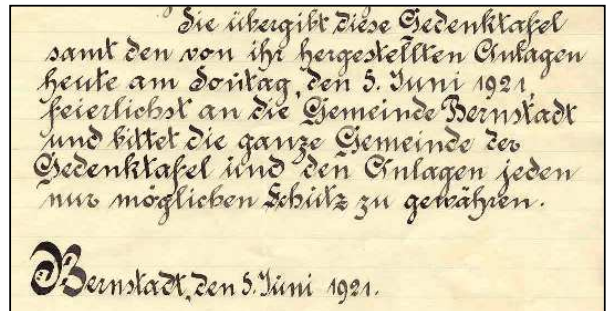 Sie übergibt diese Gedenktafel
samt den von ihr hergestellten Anlagen
heute am Sontag, den 5. Juni 1921,
feierlichst an die Gemeinde Bernstadt
und bittet die ganze Gemeinde der
Gedenktafel und den Anlagen jeden
nur möglichen Schutz zu gewähren.
Bernstadt, den 5. Juni 1921.